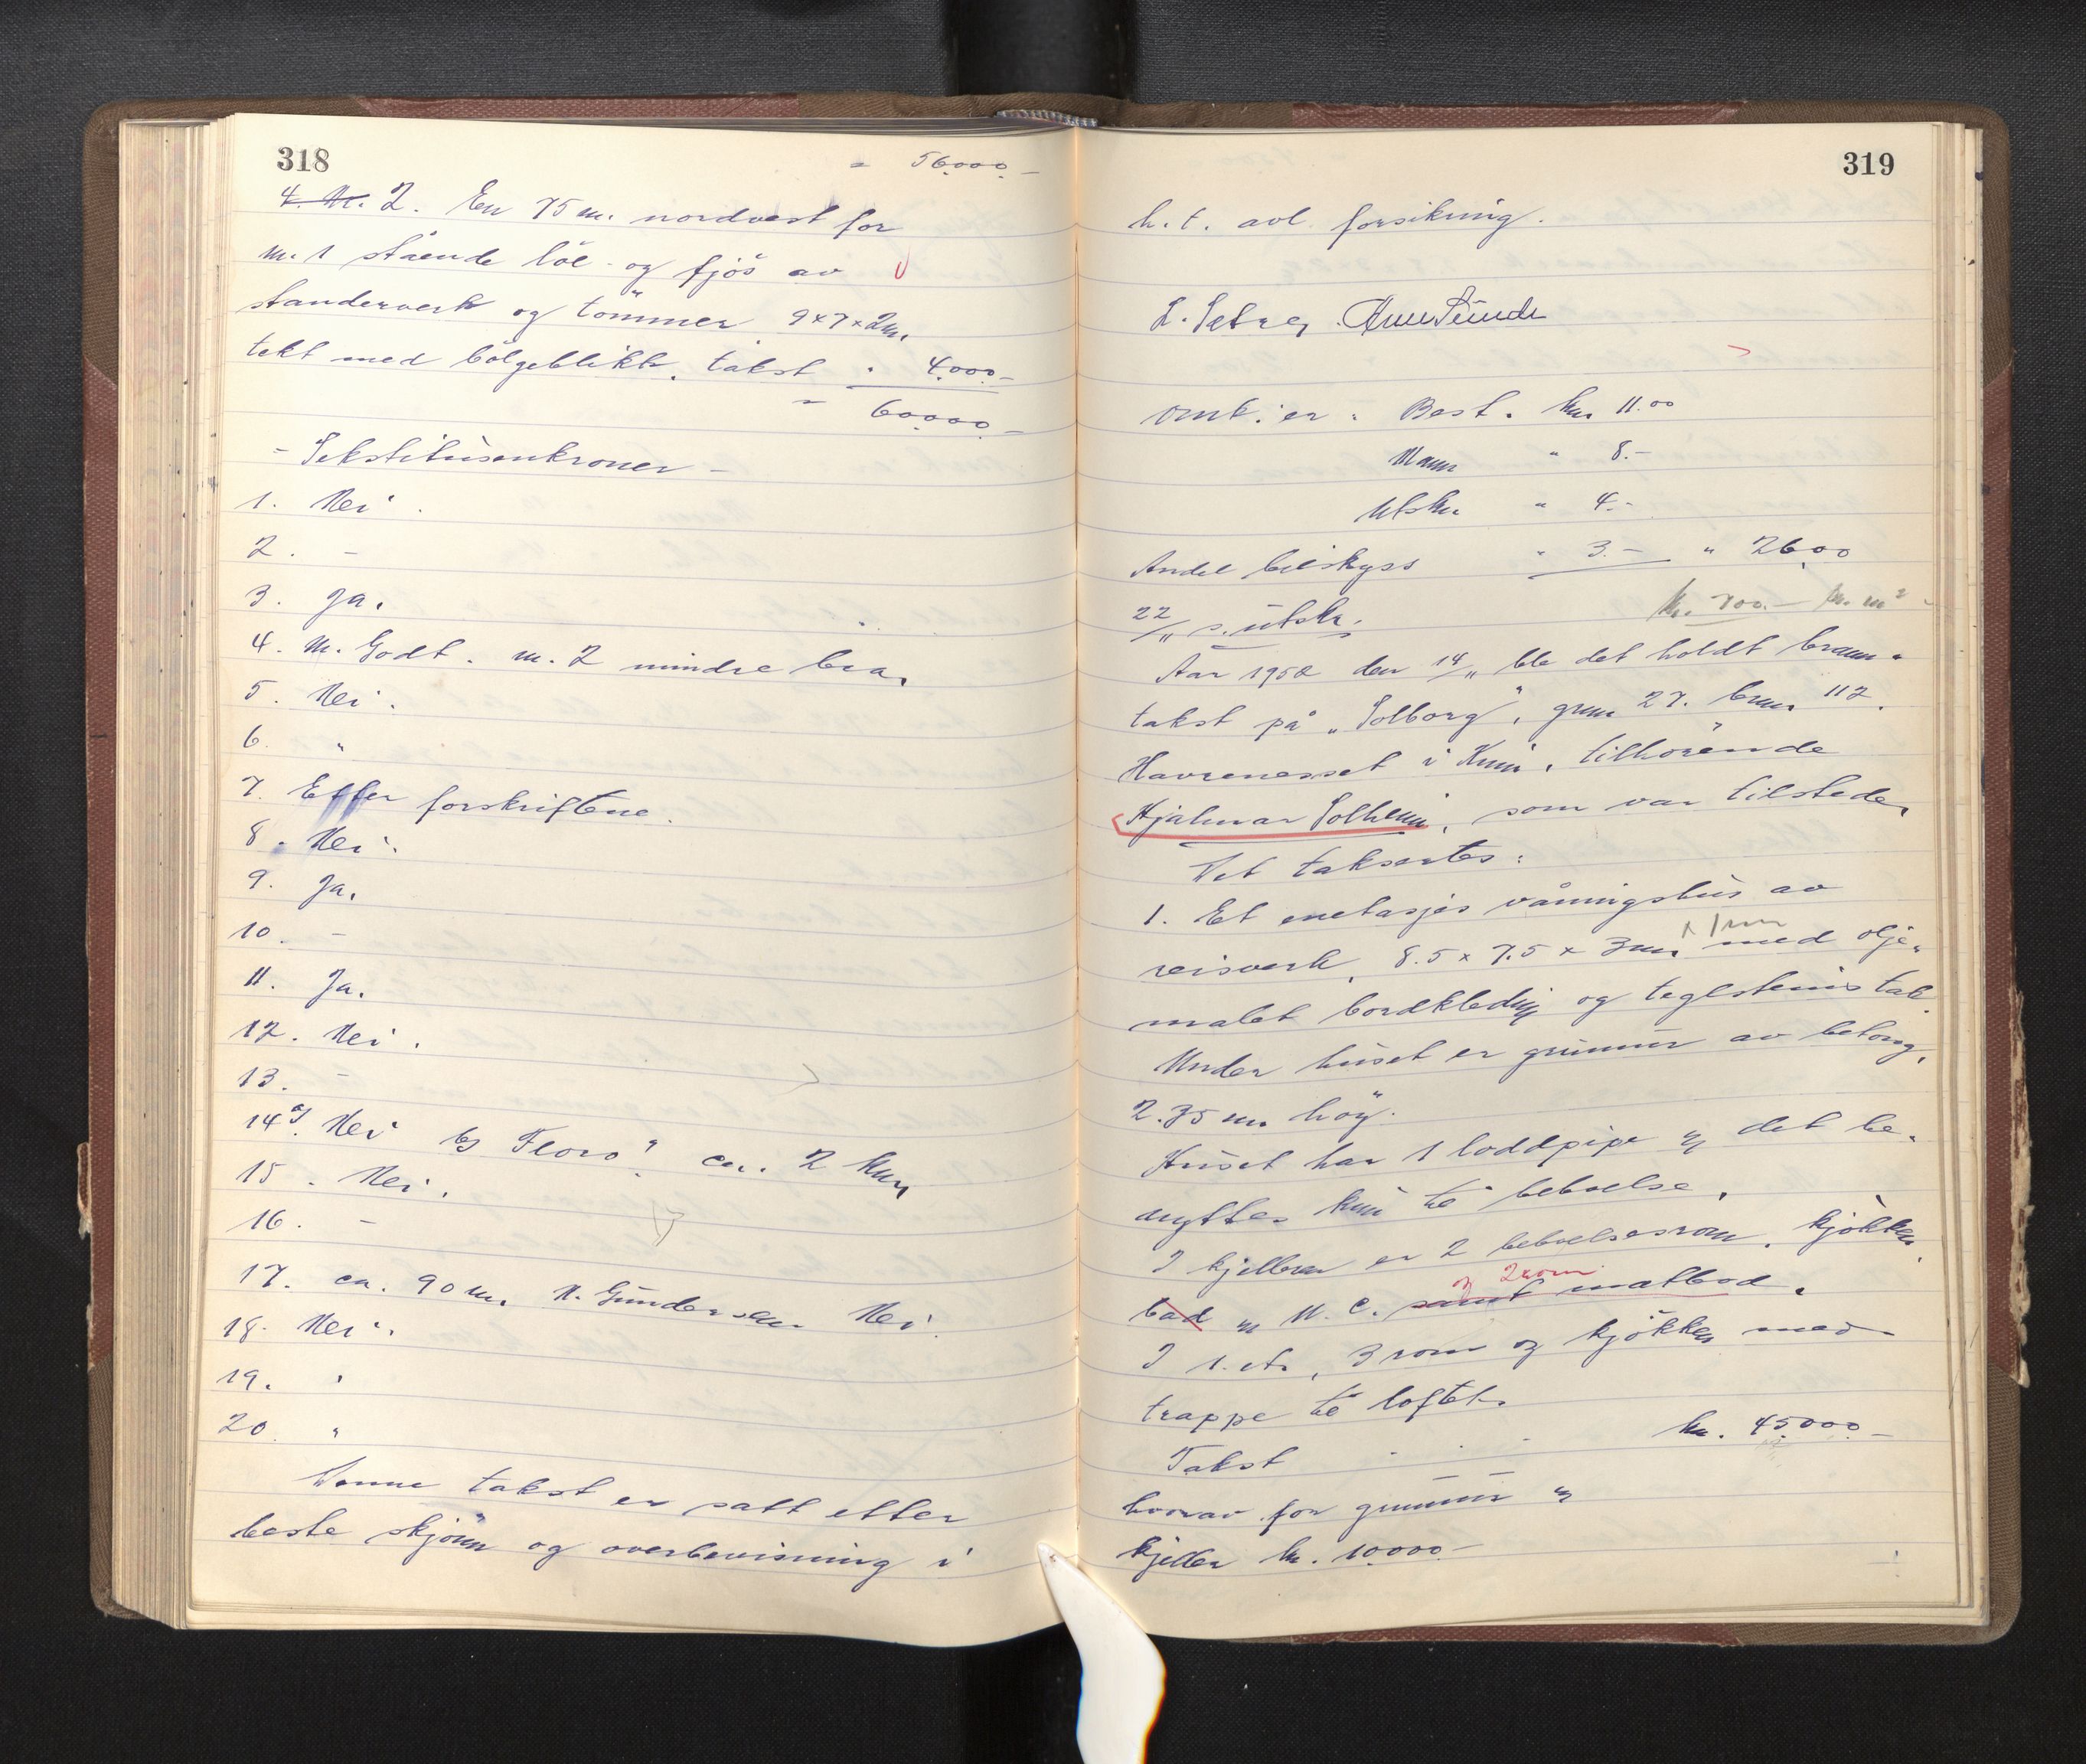 318
= 56.000.-
4. Nr. 2. En 75 m. nordvest for
nr. 1 stående löe- og fjös av
standerverk og tömmer 9x7x2m,
tekt med bölgeblikk, takst " 4.000.-
= 60.000.-
- Sekstitusenkroner -
1. Nei.
2. -
3. Ja.
4. nr. 1 Godt. nr. 2 mindre bra.
5. Nei.
6. "
7. Etter forskriftene.
8. Nei.
9. Ja.
10. -
11. Ja.
12. Nei.
13. -
14 a) Nei b) Florö. ca. 2 km
15. Nei.
16. -
17. ca. 90 m. N. Gundersen Nei.
18. Nei.
19. "
20 "
Denne takst er satt etter
beste skjönn og overbevisning i
319
h.t. avl. forsikring.
L. Setre
Omk. er: Best. kr. 11.00
Mann " 8.-
Utskr. " 4.-
Andel bilskyss " 3.- " 26.00
22/11 s. utskr.
kr. 700.- kr. m²
Aar 1952 den 14/11 ble det holdt brann-
takst på "Solborg", gnr. 27. bnr. 112.
Havrenesset i Kinn, tilhörende
Hjalmar Solheim, som var tilstede.
Det taksertes:
1. Et enetasjes våningshus av
reisverk, 8.5 x 7.5 x 3 m. med olje-
malet bordkledning og teglsteinstak.
Under huset er grunnmur av betong,
2.35 m. höy.
Huset har 1 loddpipe og det be-
nyttes kun til beboelse.
I kjelleren er 2 beboelsesrom, kjökken,
og 2 rom
bad og W.C. samt matbod.
I 1. etg. 3 rom og kjökken med
trappe til loftet.
Takst - - - kr. 45.000.-
hvorav for grunnmur og
kjeller kr. 10.000.-